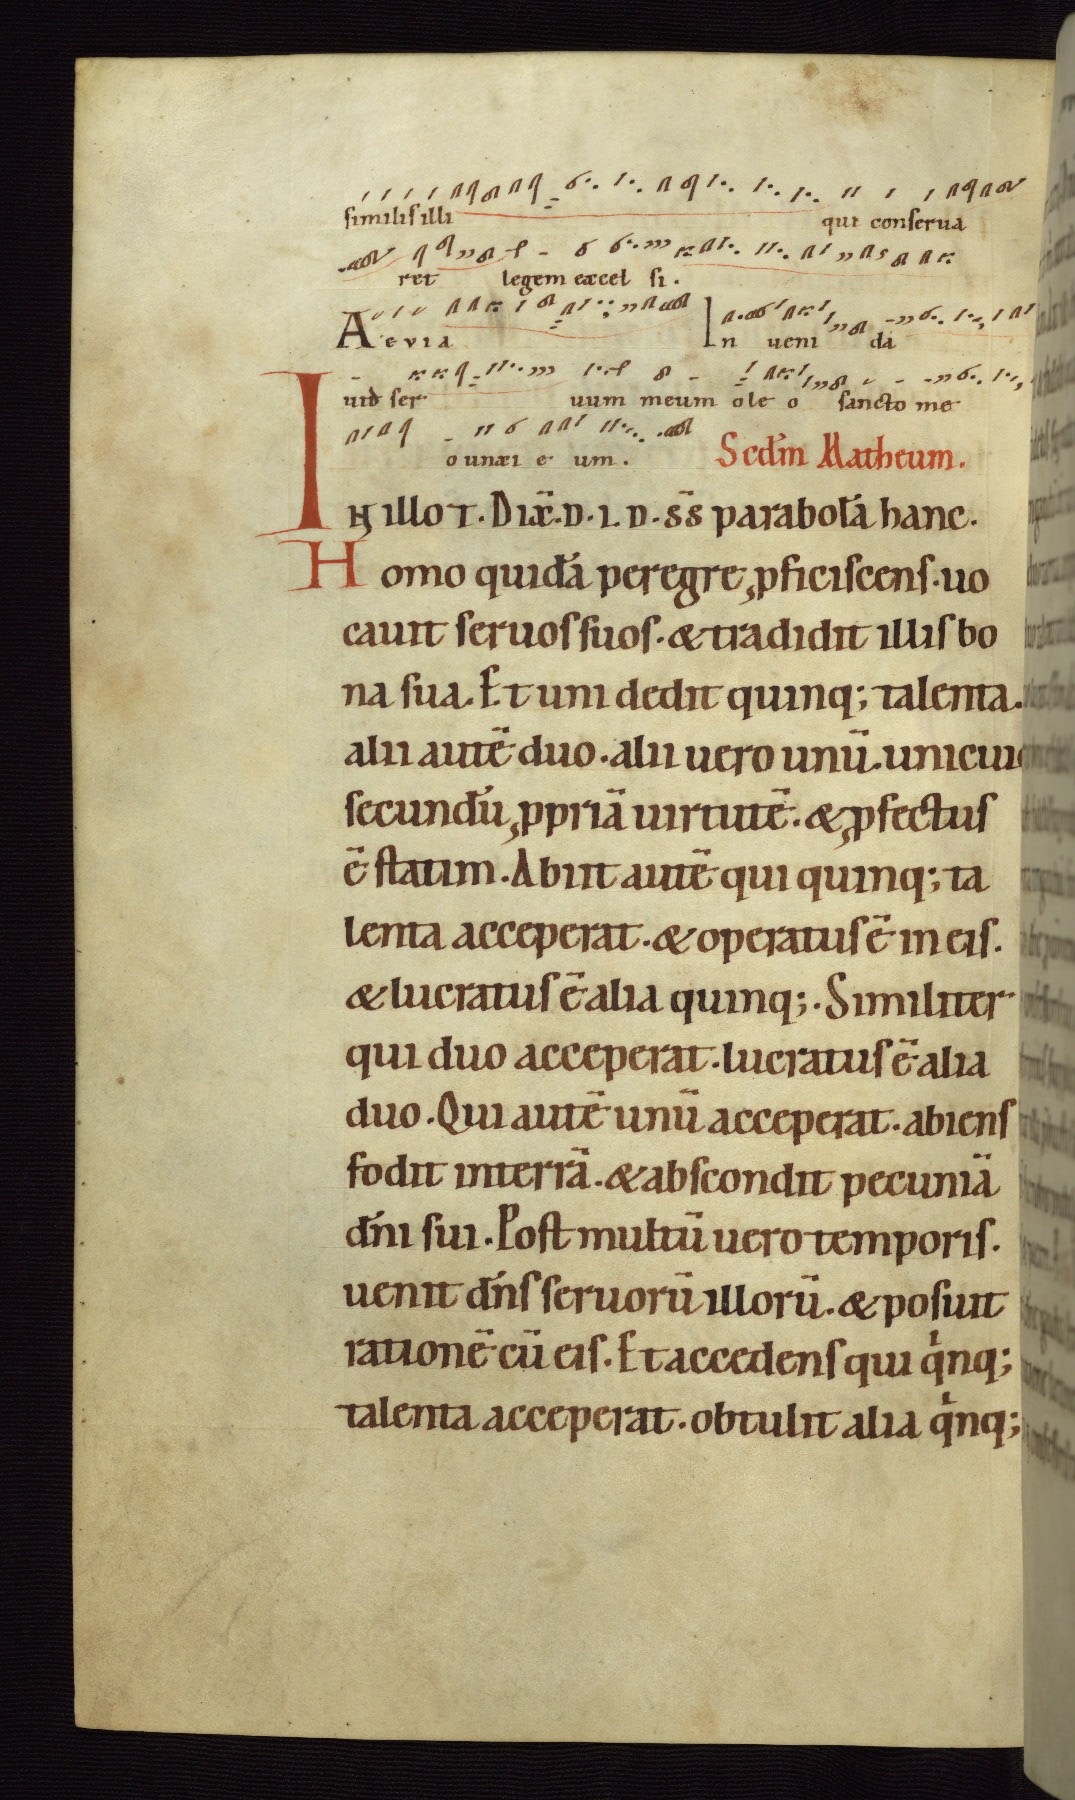 similis illi qui conserua
ret legem excel si.
Aevia Inueni da
uid ser uum meum oleo sancto me
o unxi e um.
Scdm̄ Matheum.
IN illo T. Dix̄. D. I. D. s̄s parabolā hanc.
Homo quidā peregre ꝓficiscens. uo
cauit seruos suos. & tradidit illis bo
na sua. Et uni dedit quinq; talenta.
alii autē duo. alii uero unū. unicui
secundū ꝓpriā uirtutē. & ꝓfectus
ē statim. Abiit autē qui quinq; ta
lenta acceperat. & operatus ē in eis.
& lucratus ē alia quinq;. Similiter
qui duo acceperat. lucratus ē alia
duo. Qui autē unū acceperat. abiens
fodit in terrā. & abscondit pecuniā
dn̄i sui. Post multū uero temporis.
uenit dn̄s seruorū illorū. & posuit
rationē cū eis. Et accedens qui qͥnq;
talenta acceperat. obtulit alia qͥnq;